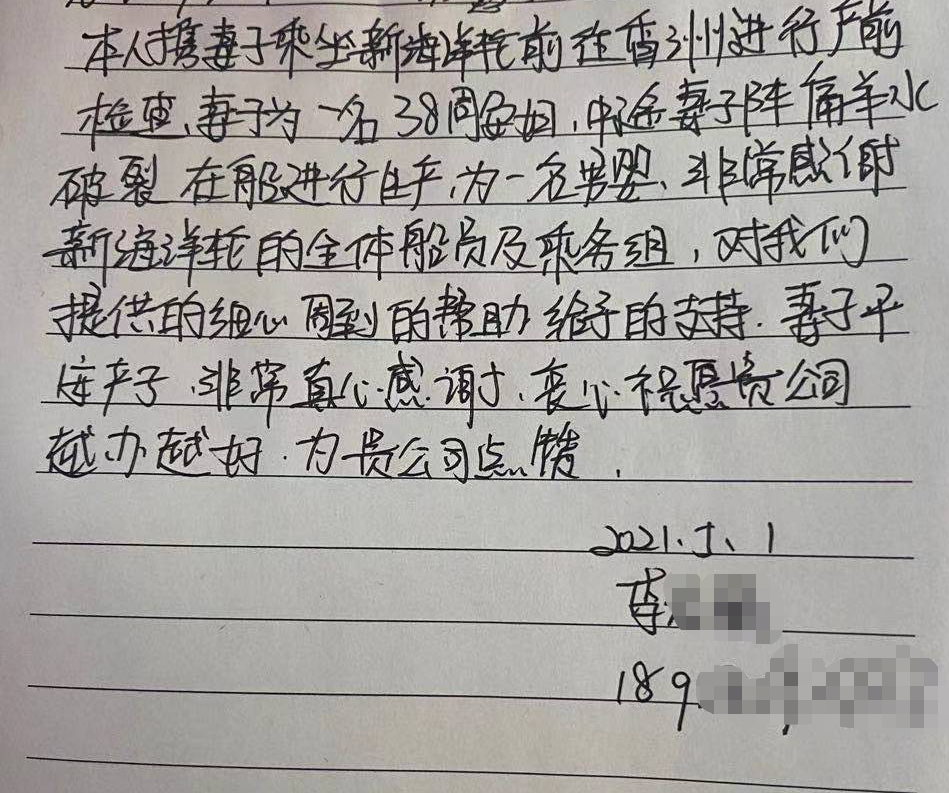 本人携妻子乘坐新海洋轮前往香洲进行产前
检查、妻子为一名38周孕妇，中途妻子阵痛羊水
破裂 在船进行生产，为一名男婴、非常感谢
新海洋轮的全体船员及乘务组，对我们
提供的细心周到的帮助 给予的支持.妻子平
安产子、非常真心感谢，衷心祝愿贵公司
越办越好.为贵公司点赞，
2021.5.1
李
189